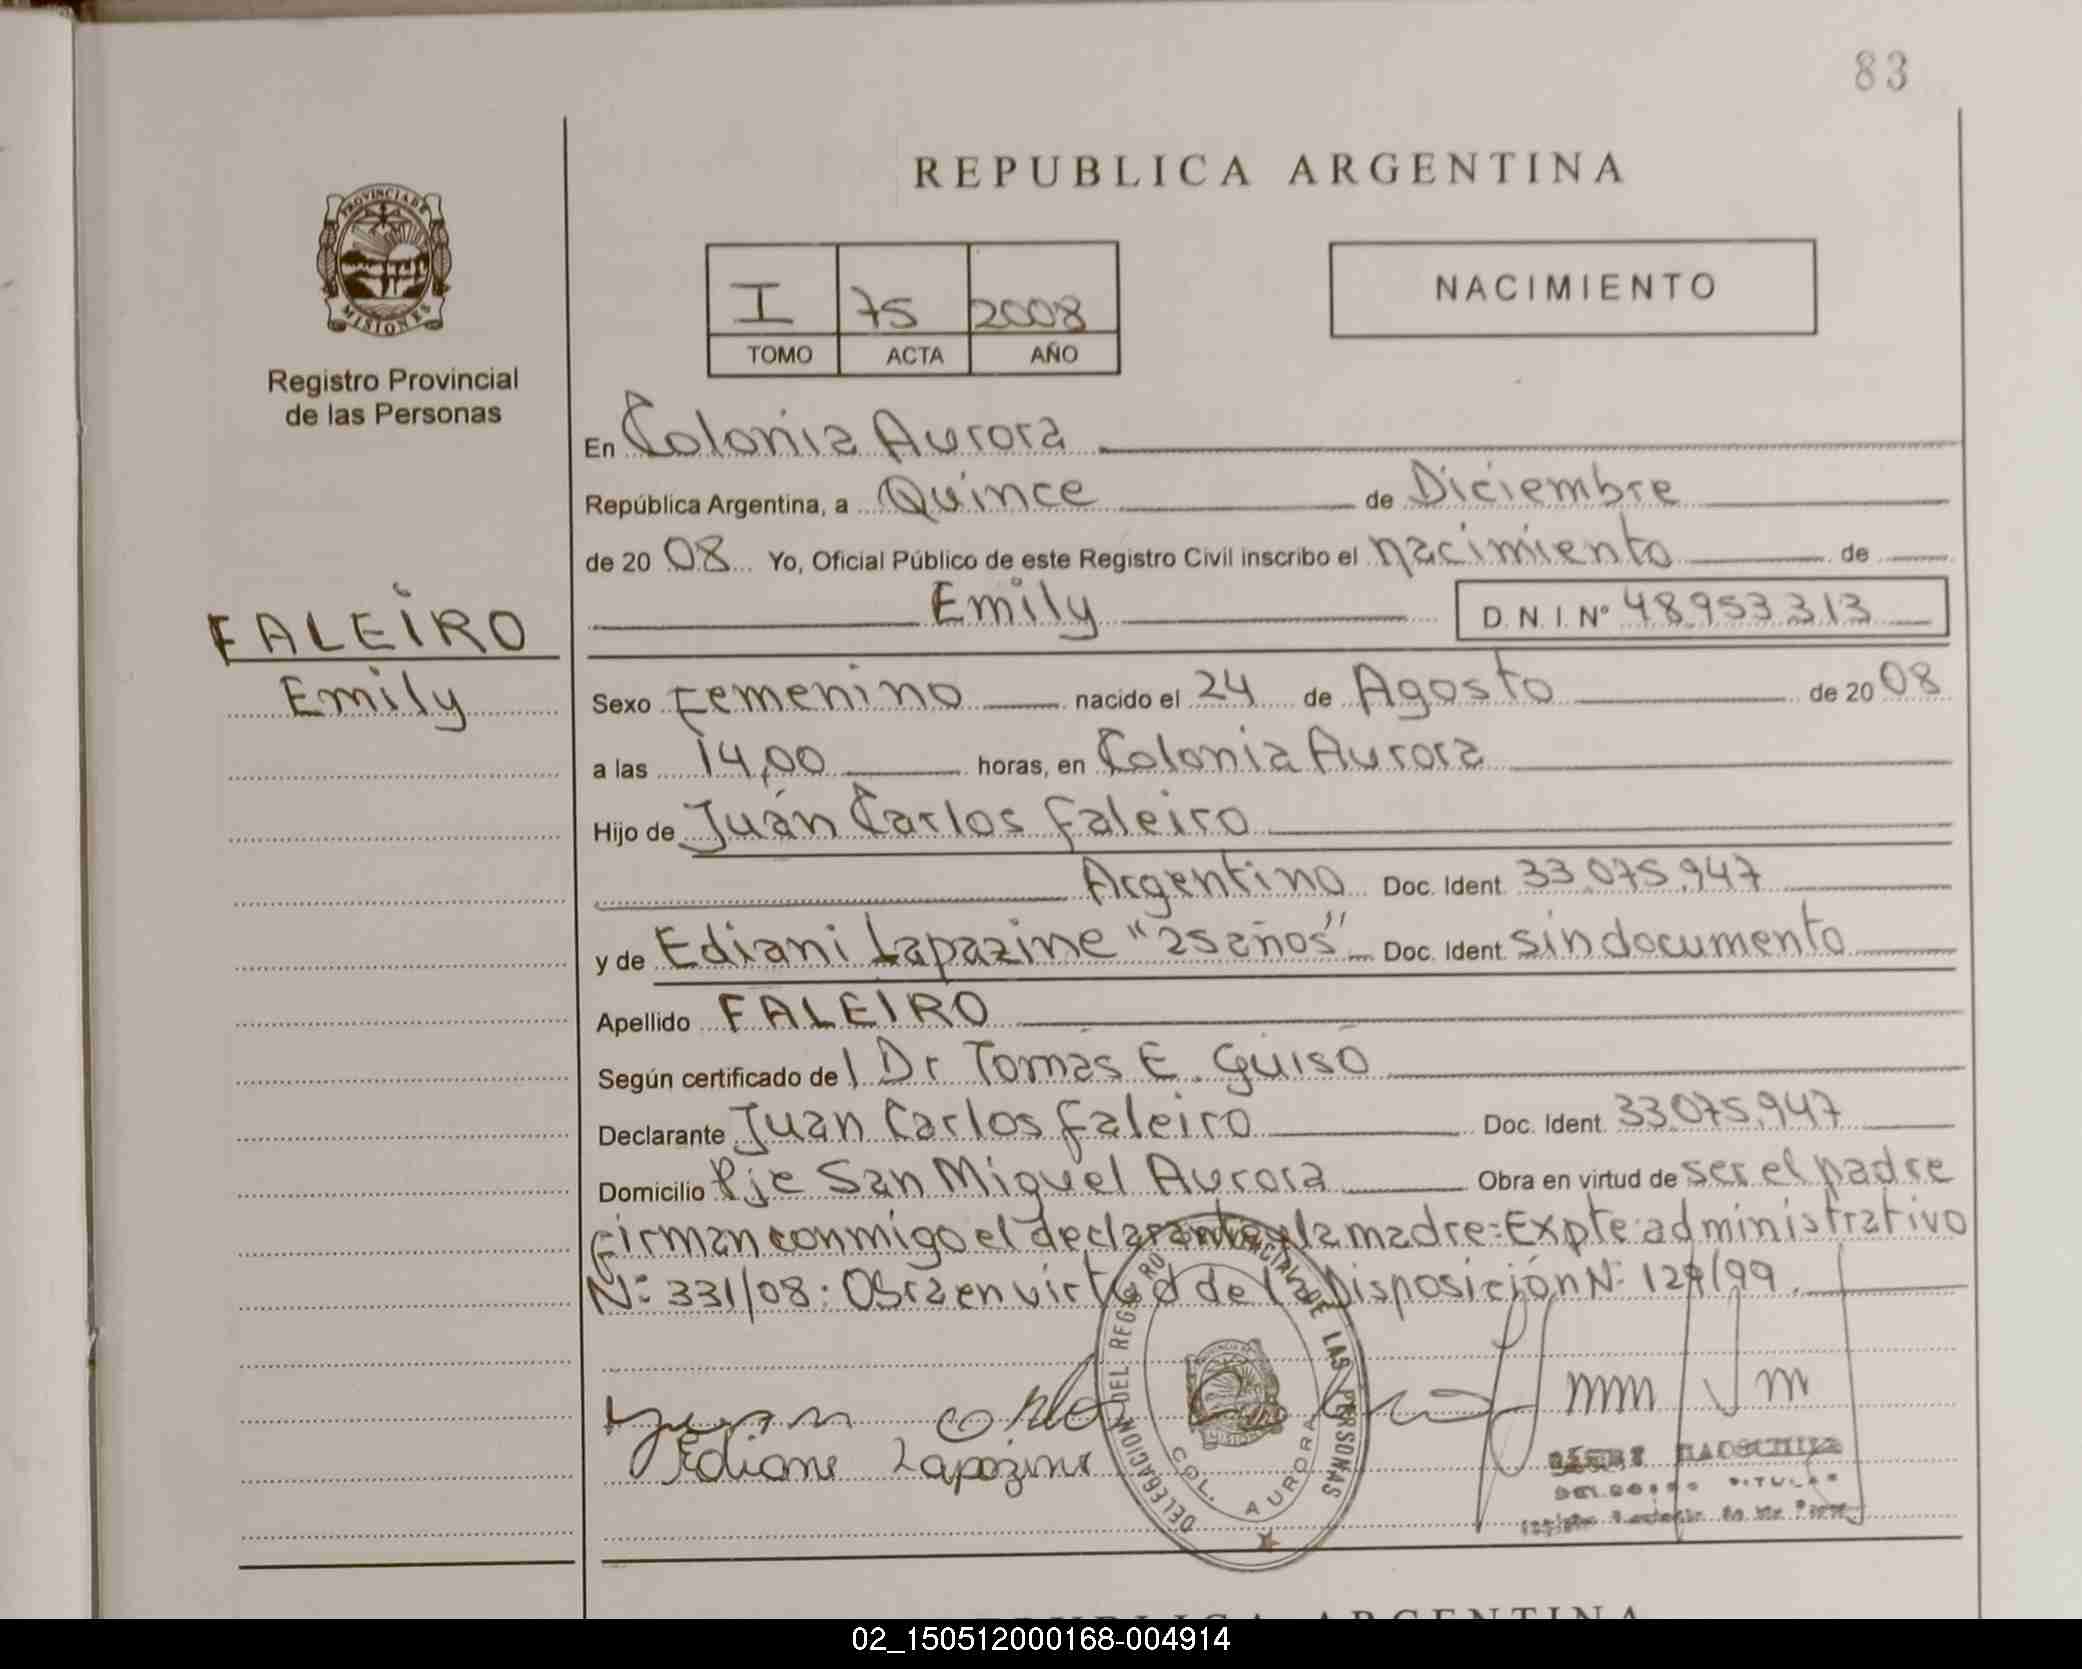 83
REPUBLICA ARGENTINA
PROVINCIA DE
MISIONES
I 75 2008
TOMO ACTA AÑO
NACIMIENTO
Registro Provincial
de las Personas
En Colonia Aurora
República Argentina, a Quince de Diciembre
de 20 08 Yo, Oficial Público de este Registro Civil inscribo el nacimiento de
Emily D.N.I. Nº 48953313
FALEIRO
Emily
Sexo Femenino nacido el 24 de Agosto de 20 08
a las 14,00 horas, en Colonia Aurora
Hijo de Juan Carlos Faleiro
Argentino Doc. Ident. 33.075.947
y de Ediani Lapazine "25 años" Doc. Ident. sin documento
Apellido FALEIRO
Según certificado del Dr Tomás E. Guiso
Declarante Juan Carlos Faleiro Doc. Ident. 33.075.947
Domicilio Pje San Miguel Aurora Obra en virtud de ser el padre
firman conmigo el declarante y la madre: Expte administrativo
Nº: 331/08: Obra en virtud de la Disposición Nº 129/99.
DELEGACION DEL REGISTRO PROVINCIAL DE LAS PERSONAS
COL. AURORA
Ediane Lapazine
02_150512000168-004914